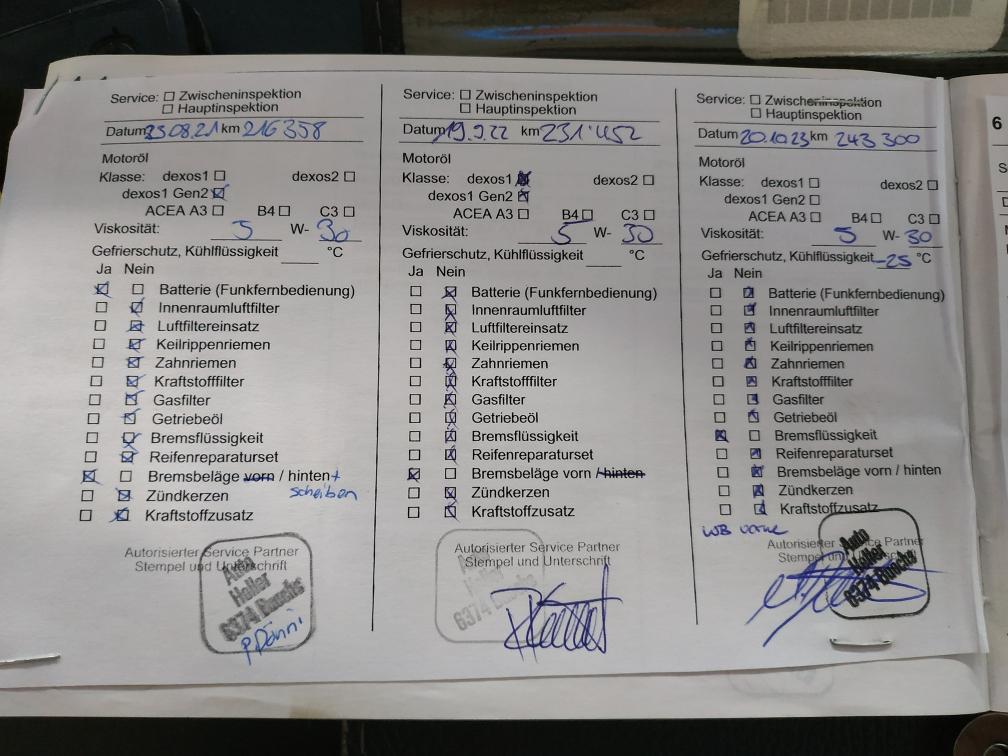 Service: ☐ Zwischeninspektion
☐ Hauptinspektion
Datum 23.08.21 km 216358
Motoröl
Klasse: dexos1 ☐ dexos2 ☐
dexos1 Gen2 ☒
ACEA A3 ☐ B4 ☐ C3 ☐
Viskosität: 5 W- 30
Gefrierschutz, Kühlflüssigkeit ____ °C
Ja Nein
☒ ☐ Batterie (Funkfernbedienung)
☐ ☒ Innenraumluftfilter
☐ ☒ Luftfiltereinsatz
☐ ☒ Keilrippenriemen
☐ ☒ Zahnriemen
☐ ☒ Kraftstofffilter
☐ ☒ Gasfilter
☐ ☒ Getriebeöl
☐ ☒ Bremsflüssigkeit
☐ ☒ Reifenreparaturset
☒ ☐ Bremsbeläge vorn / hinten +
scheiben
☐ ☒ Zündkerzen
☐ ☒ Kraftstoffzusatz
Autorisierter Service Partner
Stempel und Unterschrift
Auto
Holler
6374 Buochs
Service: ☐ Zwischeninspektion
☐ Hauptinspektion
Datum 19.9.22 km 231'452
Motoröl
Klasse: dexos1 ☒ dexos2 ☐
dexos1 Gen2 ☒
ACEA A3 ☐ B4 ☐ C3 ☐
Viskosität: 5 W- 30
Gefrierschutz, Kühlflüssigkeit ____ °C
Ja Nein
☐ ☒ Batterie (Funkfernbedienung)
☐ ☒ Innenraumluftfilter
☐ ☒ Luftfiltereinsatz
☐ ☒ Keilrippenriemen
☐ ☒ Zahnriemen
☐ ☒ Kraftstofffilter
☐ ☒ Gasfilter
☐ ☒ Getriebeöl
☐ ☒ Bremsflüssigkeit
☐ ☒ Reifenreparaturset
☒ ☐ Bremsbeläge vorn / hinten
☐ ☒ Zündkerzen
☐ ☒ Kraftstoffzusatz
Autorisierter Service Partner
Stempel und Unterschrift
Auto
Holler
6374 Buochs
Service: ☐ Zwischeninspektion
☐ Hauptinspektion
Datum 20.10.23 km 243 300
Motoröl
Klasse: dexos1 ☐ dexos2 ☐
dexos1 Gen2 ☐
ACEA A3 ☐ B4 ☐ C3 ☐
Viskosität: 5 W- 30
Gefrierschutz, Kühlflüssigkeit -25 °C
Ja Nein
☐ ☒ Batterie (Funkfernbedienung)
☐ ☒ Innenraumluftfilter
☐ ☒ Luftfiltereinsatz
☐ ☒ Keilrippenriemen
☐ ☒ Zahnriemen
☐ ☒ Kraftstofffilter
☐ ☒ Gasfilter
☐ ☒ Getriebeöl
☒ ☐ Bremsflüssigkeit
☐ ☒ Reifenreparaturset
☐ ☒ Bremsbeläge vorn / hinten
☐ ☒ Zündkerzen
☐ ☒ Kraftstoffzusatz
vorne
Autorisierter Service Partner
Stempel und
Auto
Holler
6374 Buochs
6